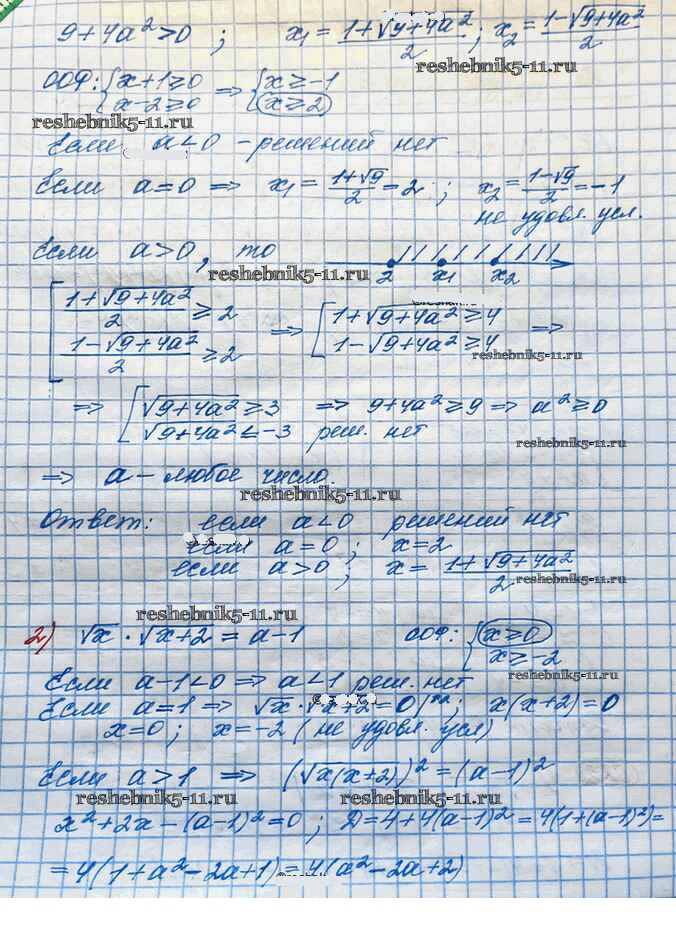 9+4a²>0 ; x₁ = (1+√(9+4a²))/2 ; x₂ = (1-√(9+4a²))/2
reshebnik5-11.ru
ООФ: {x+1≥0 => {x≥-1
x-2≥0 x≥2
reshebnik5-11.ru
Если a<0 - решений нет
Если a=0 => x₁ = (1+√9)/2 = 2 ; x₂ = (1-√9)/2 = -1
не удовл. усл.
Если a>0, то 2 x₁ x₂
reshebnik5-11.ru
[(1+√(9+4a²))/2 ≥ 2 => [1+√(9+4a²) ≥ 4 =>
(1-√(9+4a²))/2 ≥ 2 1-√(9+4a²) ≥ 4
reshebnik5-11.ru
=> [√(9+4a²) ≥ 3 => 9+4a² ≥ 9 => a² ≥ 0
√(9+4a²) ≤ -3 реш. нет
reshebnik5-11.ru
=> a - любое число.
reshebnik5-11.ru
Ответ: если a<0 решений нет
если a=0 ; x=2
если a>0 ; x = (1+√(9+4a²))/2
reshebnik5-11.ru
reshebnik5-11.ru
2) √x · √(x+2) = a-1 ООФ: {x≥0
x≥-2
reshebnik5-11.ru
Если a-1<0 => a<1 реш. нет
Если a=1 => √x · √(x+2) = 0 ; x(x+2)=0
x=0 ; x=-2 (не удовл. усл)
Если a>1 => (√(x(x+2)))² = (a-1)²
reshebnik5-11.ru reshebnik5-11.ru
x²+2x-(a-1)²=0 ; D=4+4(a-1)² = 4(1+(a-1)²) =
= 4(1+a²-2a+1) = 4(a²-2a+2)